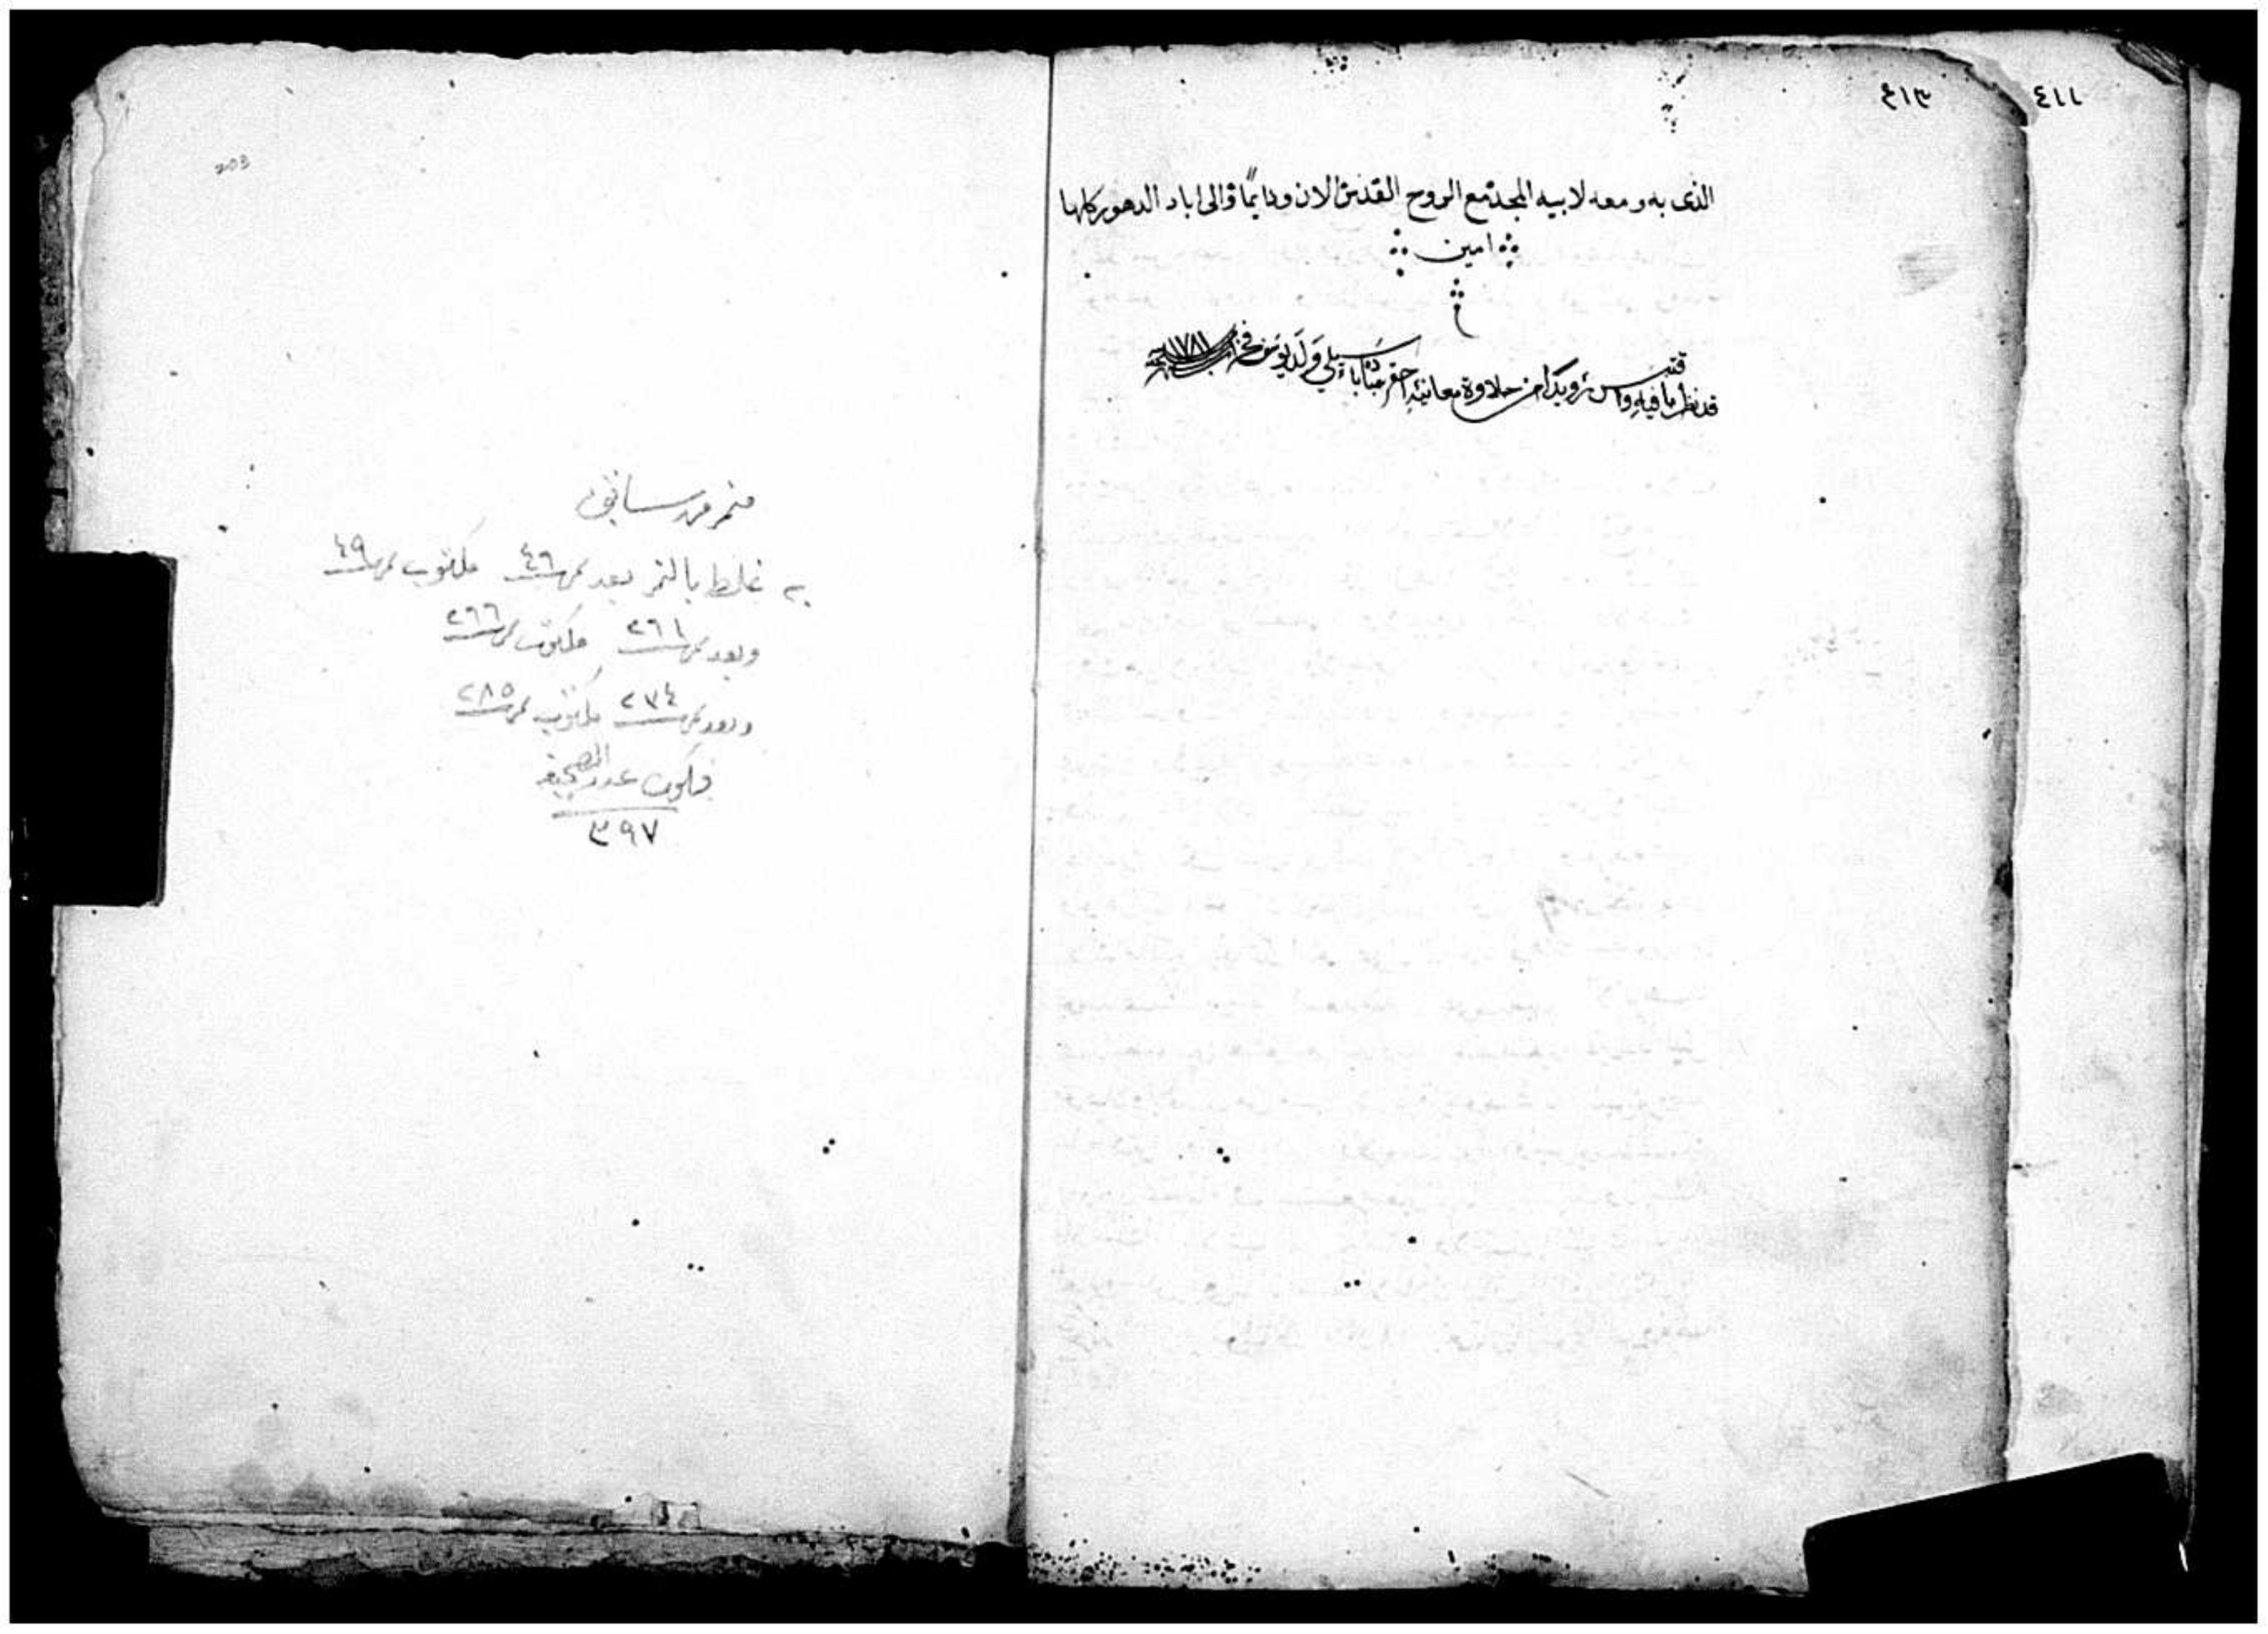 ٤١١
٤١٣
الذى به ومعه لابيه المجد مع الروح القدس الان ودايمًا والى اباد الدهور كلها
امين
قد نظر ما فيه من حلاوة معانيه احقر ولد يوسف فخر
١٧٨١
203
به غلط بالنمر بعد نمرة ٤٦ مكتوب نمرة ٤٩
وبعد نمرة ٢٦١ مكتوب نمرة ٢٦٦
وبعد نمرة ٢٧٤ مكتوب نمرة ٢٨٥
فيكون عدد الصحيفة
٣٩٧